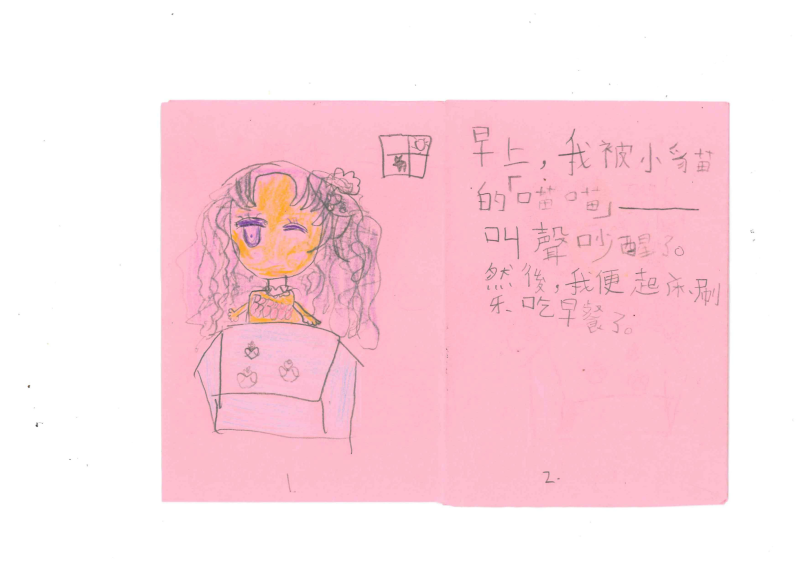 1.
早上，我被小貓
的「喵喵」
叫聲吵醒了。
然後，我便起床、刷
牙、吃早餐了。
2.